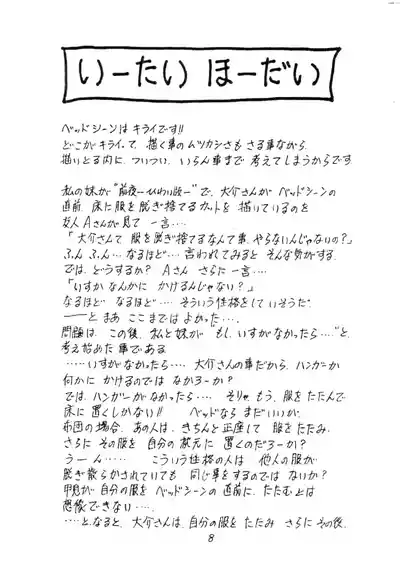 いーたい ほーだい
ベッドシーンは キライです!!
どこがキライって、描く事のムツカシさも さる事ながら、
描いとる内に、ついつい、いらん事まで 考えてしまうからです
私の妹が“前夜 ひわい版”で、大介さんが ベッドシーンの
直前 床に服を脱ぎ捨てるカットを 描いているのを
友人 Aさんが見て 一言‥‥
「大介さんて 服を脱ぎ捨てるなんて事、やらないんじゃないの?」
ふんふん‥‥なるほど‥‥言われてみると そんな気がする.
では、どうするか? Aさん さらに一言‥‥
「いすか なんかに かけるんじゃない?」
なるほど なるほど‥‥そういう性格をしていそうだ.
――と まあ ここまでは よかった‥‥.
問題は、この後、私と妹が“もし、いすがなかったら‥‥”と、
考え始めた事である
‥‥‥いすがなかったら‥‥ 大介さんの事だから、ハンガーか
何かに かけるのでは なかろーか?
では、ハンガーがなかったら‥‥ そりゃ もう、服をたたんで
床に置くしかない!! ベッドなら まだいいが、
布団の場合、あの人は、きちんと正座して 服をたたみ、
さらに その服を 自分の枕元に 置くのだろーか?
うーん‥‥‥ こういう性格の人は 他人の服が
脱ぎ散らかされていても 同じ事をするのでは ないか?
甲児が 自分の服を ベッドシーンの直前に、たたむとは
想像できない‥‥.
‥‥‥と、なると、大介さんは、自分の服を たたみ さらにその後、
8